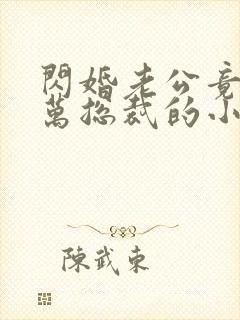 閃婚老公竟
萬總裁的小
陳武東